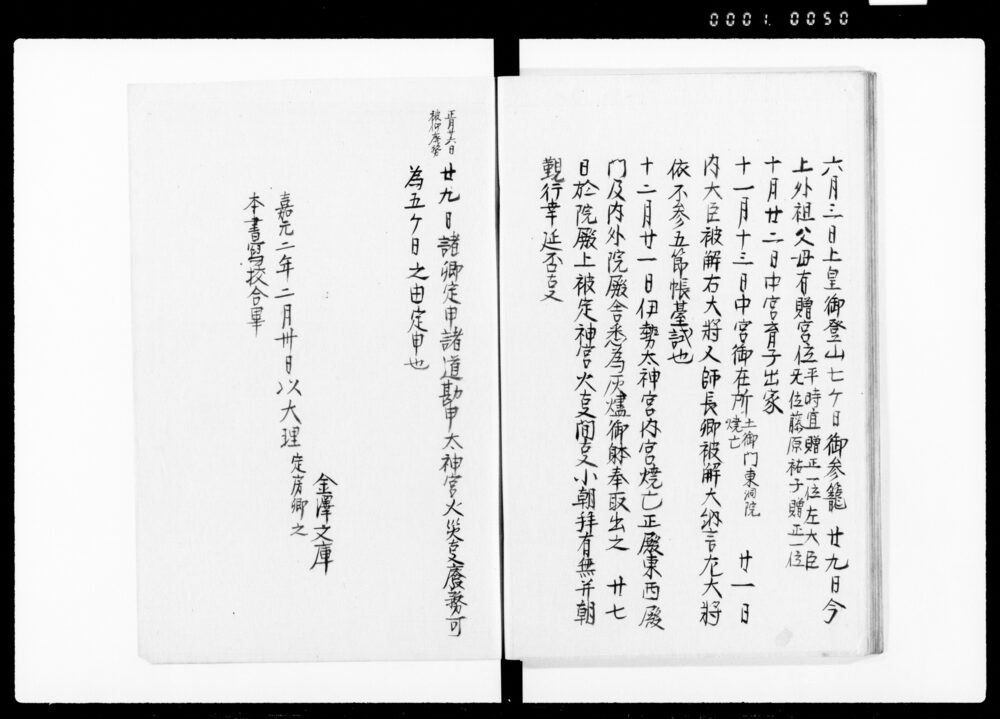 0001.0050
六月三日上皇御登山七ケ日御参籠 廿九日今
上外祖父母有贈官位平時宜贈正一位左大臣
无位藤原祐子贈正一位
十月廿二日中宮育子出家
十一月十三日中宮御在所土御門東洞院
焼亡 廿一日
内大臣被解右大将又師長卿被解大納言左大将
依不参五節帳臺試也
十二月廿一日伊勢太神宮内宮焼亡正殿東西殿
門及内外院殿舎悉為灰燼御躰奉取出之 廿七
日於院殿上被定神宮火事間事小朝拜有無并朝
覲行幸延否事
被仰廃務
廿九日諸卿定申諸道勘申太神宮火災事廢務可
為五ケ日之由定申也
嘉元二年二月卅日以大理定房卿之
本書寫校合畢
金澤文庫